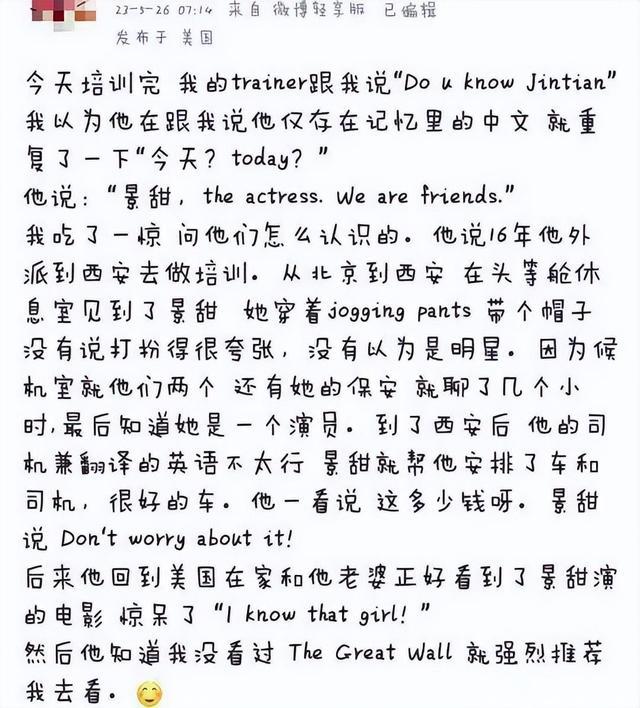 23-5-26 07:14 来自 微博轻享版 已编辑
发布于 美国
今天培训完 我的trainer跟我说“Do u know Jintian”
我以为他在跟我说他仅存在记忆里的中文 就重
复了一下“今天？today？”
他说：“景甜，the actress. We are friends.”
我吃了一惊 问他们怎么认识的。他说16年他外
派到西安去做培训。从北京到西安 在头等舱休
息室见到了景甜 她穿着jogging pants 带个帽子
没有说打扮得很夸张，没有以为是明星。因为候
机室就他们两个 还有她的保安 就聊了几个小
时,最后知道她是一个演员。到了西安后 他的司
机兼翻译的英语不太行 景甜就帮他安排了车和
司机，很好的车。他一看说 这多少钱呀。景甜
说 Don't worry about it!
后来他回到美国在家和他老婆正好看到了景甜演
的电影 惊呆了“I know that girl!”
然后他知道我没看过 The Great Wall 就强烈推荐
我去看。